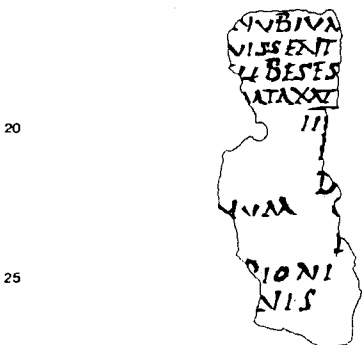 MVBIVM
VISSENT
BESES
ATAXAT
III
20
D
VVM
25
IONI
NIS